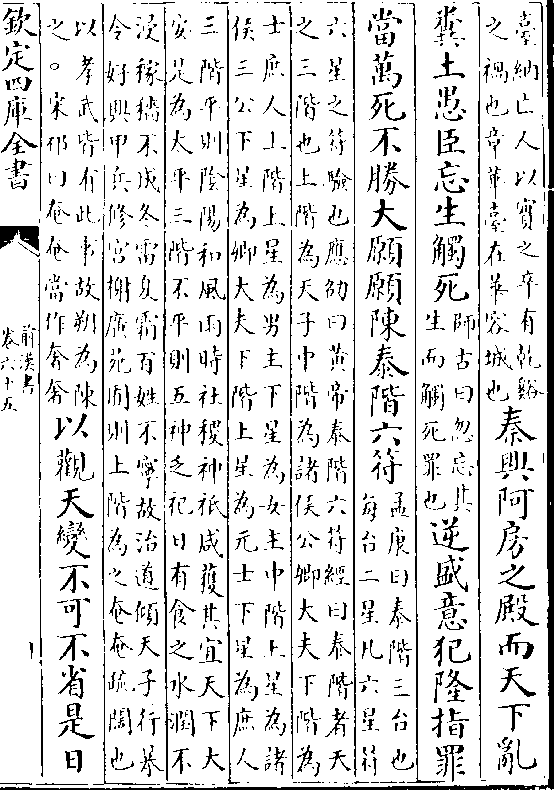 臺納亡人以實之卒有乾谿
之禍也章華臺在華容城也
秦興阿房之殿而天下亂
糞土愚臣忘生觸死
師古曰忽忘其
生而觸死罪也
逆盛意犯隆指罪
當萬死不勝大願願陳泰階六符
孟康曰泰階三台也
每台二星凡六星符
六星之符驗也應劭曰黃帝泰階六符經曰泰階者天
之三階也上階為天子中階為諸侯公卿大夫下階為
士庶人上階上星為男主下星為女主中階上星為諸
侯三公下星為卿大夫下階上星為元士下星為庶人
三階平則陰陽和風雨時社稷神祇咸獲其宜天下大
安是為大平三階不平則五神乏祀日有食之水潤不
浸稼穡不成冬雷夏霜百姓不寧故治道傾天子行暴
令好興甲兵修宮榭廣苑囿則上階為之奄奄疏闊也
以孝武皆有此事故朔為陳
之。宋祁曰奄奄當作奔奔
以觀天變不可不省是日
欽定四庫全書
前漢書
卷六十五